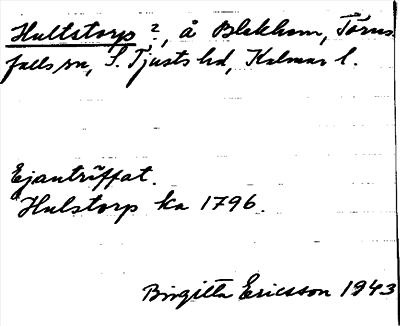 Hultstorp?, å Blekhem, Törns-
falls sn, S. Tjusts hd, Kalmar l.
Ej anträffat.
Hulstorp ka 1796.
Birgitta Ericsson 1943